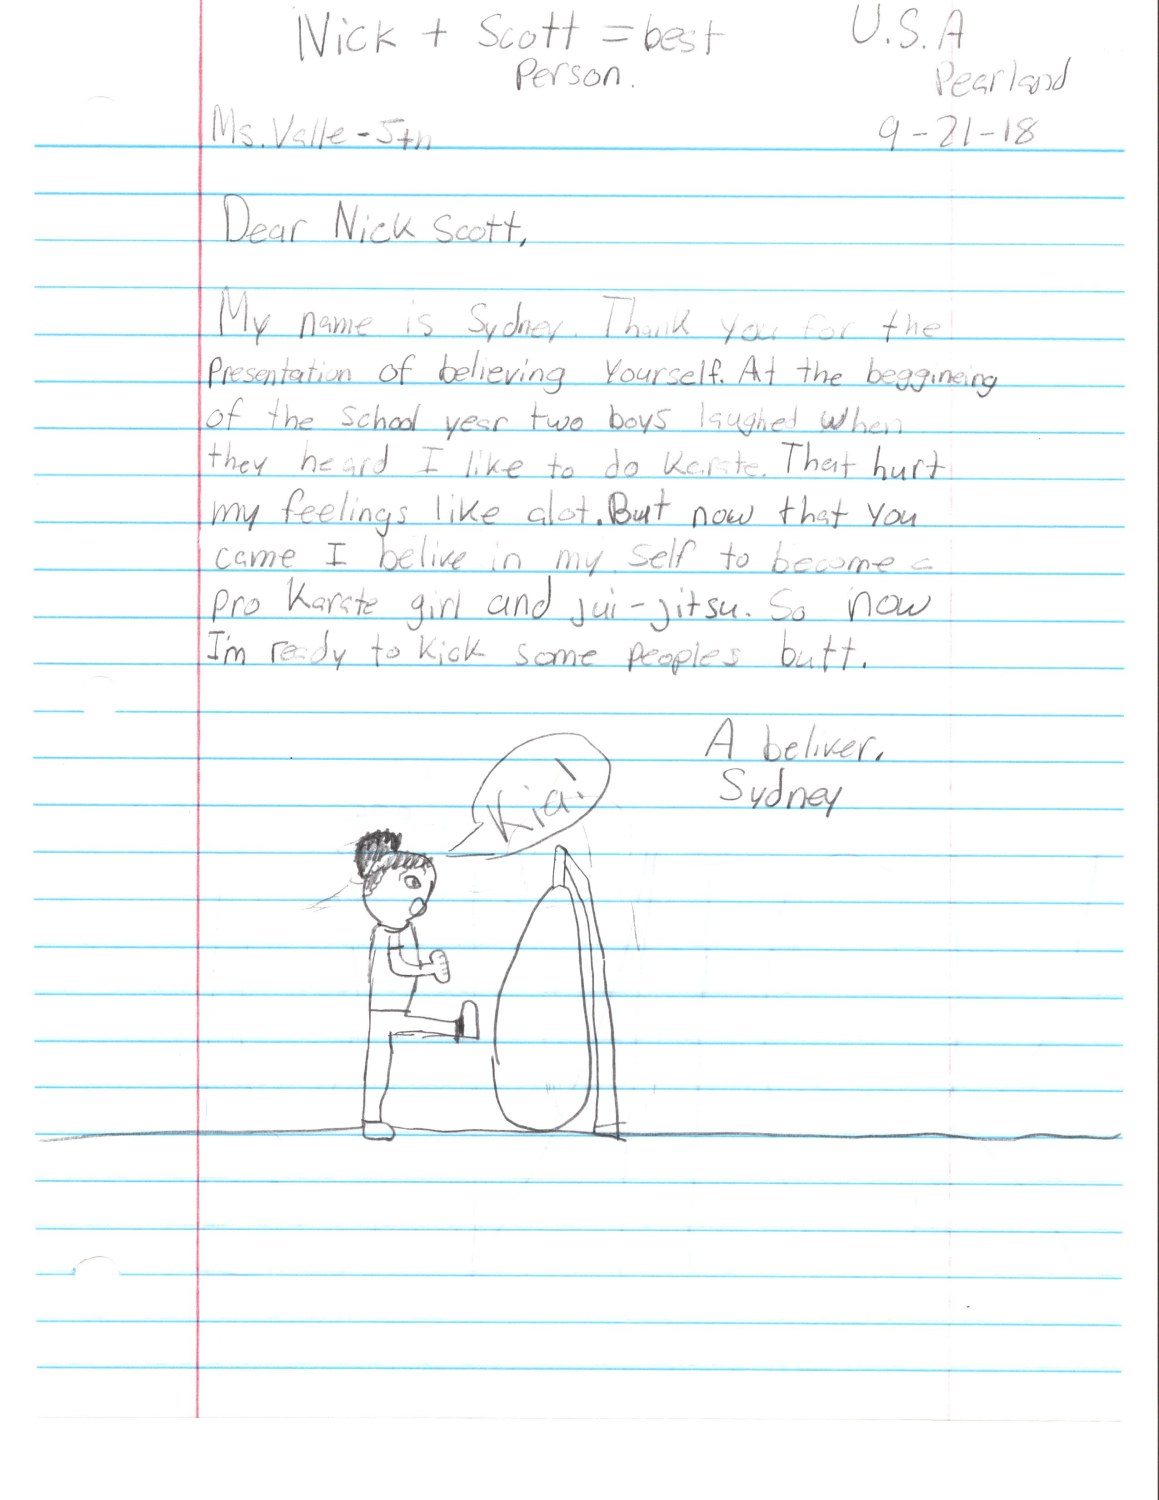 Nick + Scott = best
Person.
U.S.A
Pearland
Ms. Valle - 5th
9-21-18
Dear Nick Scott,
My name is Sydney. Thank you for the
Presentation of believing Yourself. At the beggineing
of the school year two boys laughed when
they heard I like to do Karate. That hurt
my feelings like alot. But now that you
came I belive in my self to become a
pro Karate girl and jui-jitsu. So now
I'm ready to kick some peoples butt.
A beliver,
Sydney
Kia!